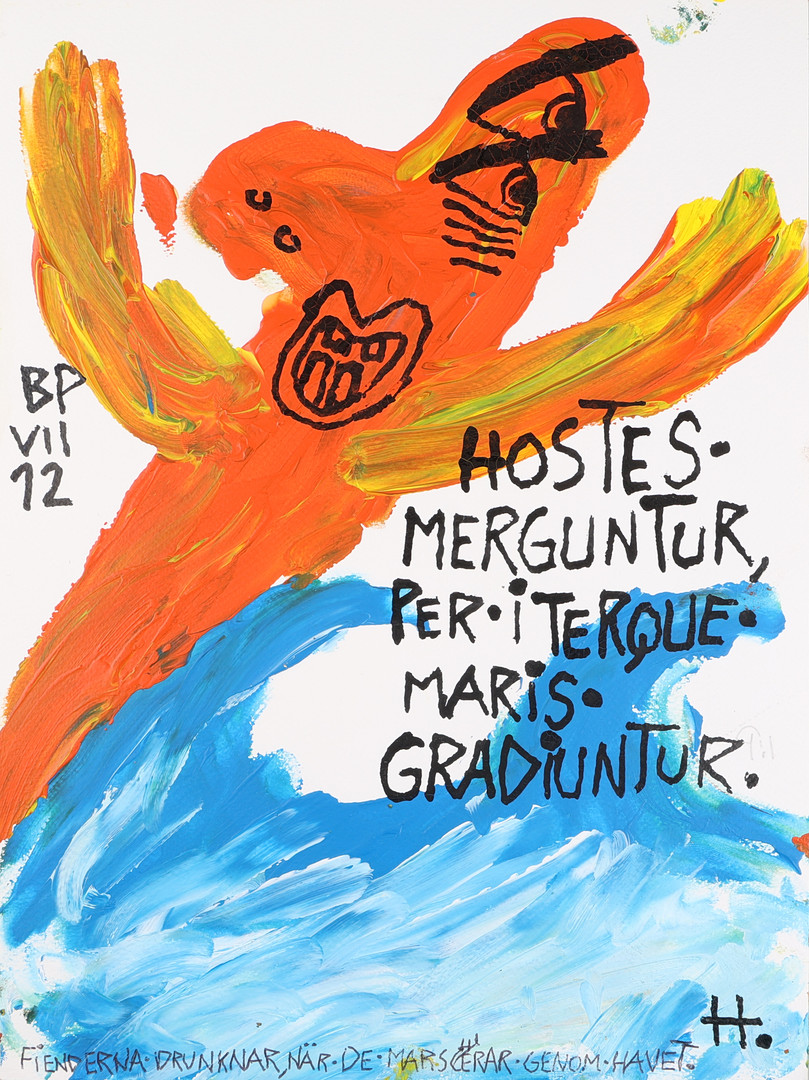 BP
VII
12
HOSTES·
MERGUNTUR,
PER·iTERQUE·
MARiS·
GRADiUNTUR.
H.
FiENDERNA·DRUNKNAR,NÄR·DE·MARSCHERAR·GENOM·HAVET.